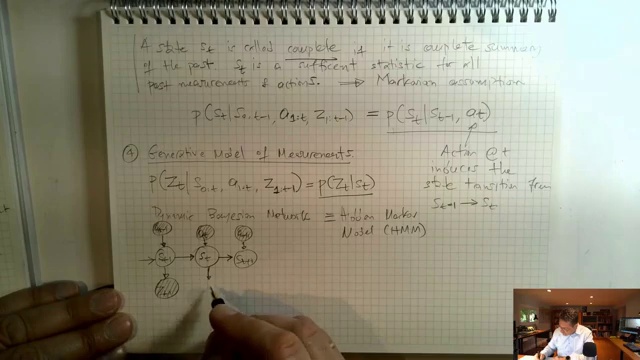 A state St is called complete if it is complete summary
of the past St is a sufficent statistic for all
past measurements & actions. ⟹ Markovian assumption
p(St|S0:t-1, a1:t, Z1:t-1) = p(St|St-1, at)
④ Generative Model of Measurements.
p(Zt|S0:t, a1:t, Z1:t-1) = p(Zt|St)
Action @ t
induces the
state transition from
St-1 → St
Dynamic Bayesian Network ≡ Hidden Markov
Model (HMM)
at-1 at at+1
St-1 St St+1
Zt-1